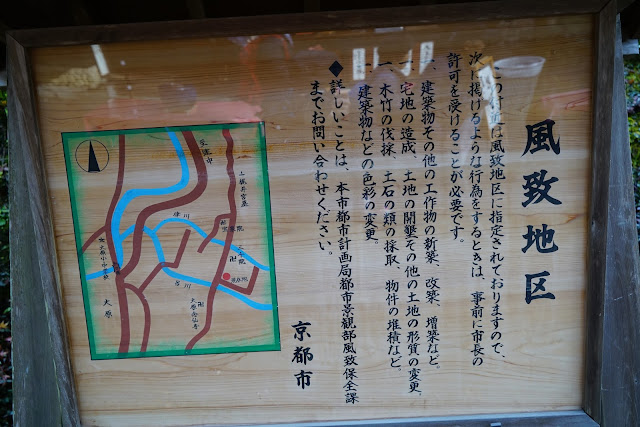 風致地区
この付近は風致地区に指定されておりますので、
次に掲げるような行為をするときは、事前に市長の
許可を受けることが必要です。
一、建築物その他の工作物の新築、改築、増築など。
一、宅地の造成、土地の開墾その他の土地の形質の変更。
一、木竹の伐採、土石の類の採取、物件の堆積など。
一、建築物などの色彩の変更。
◆詳しいことは、本市都市計画局都市景観部風致保全課
までお問い合わせください。
京都市
三千院
卍
律川
呂川
大原